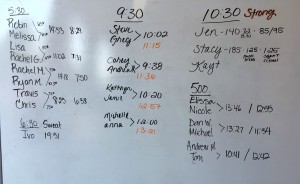 5:30
Robin
Melissa > 9:53 8:29
Lisa
Rachel G. > 11:02 7:31
Rachel M.
Ryan M. > 7:50
Travis
Chris > 8:25 8:58
6:30 Sweat
Ivo 19:31
9:30
Steve
Greg > 10:02
11:15
Corey
Andrew > 9:38
11:36
Kathryn
Jamie > 10:20
12:57
Michelle
anna > 12:00
13:21
10:30 Strong
Jen - 140 85/95
Stacy - 185 125 125
Kayt
500
Elissa
Nicole > 13:46 / 12:55
Daniel
Michael > 13:27 / 11:54
Andrew M
Tom > 10:41 / 12:42